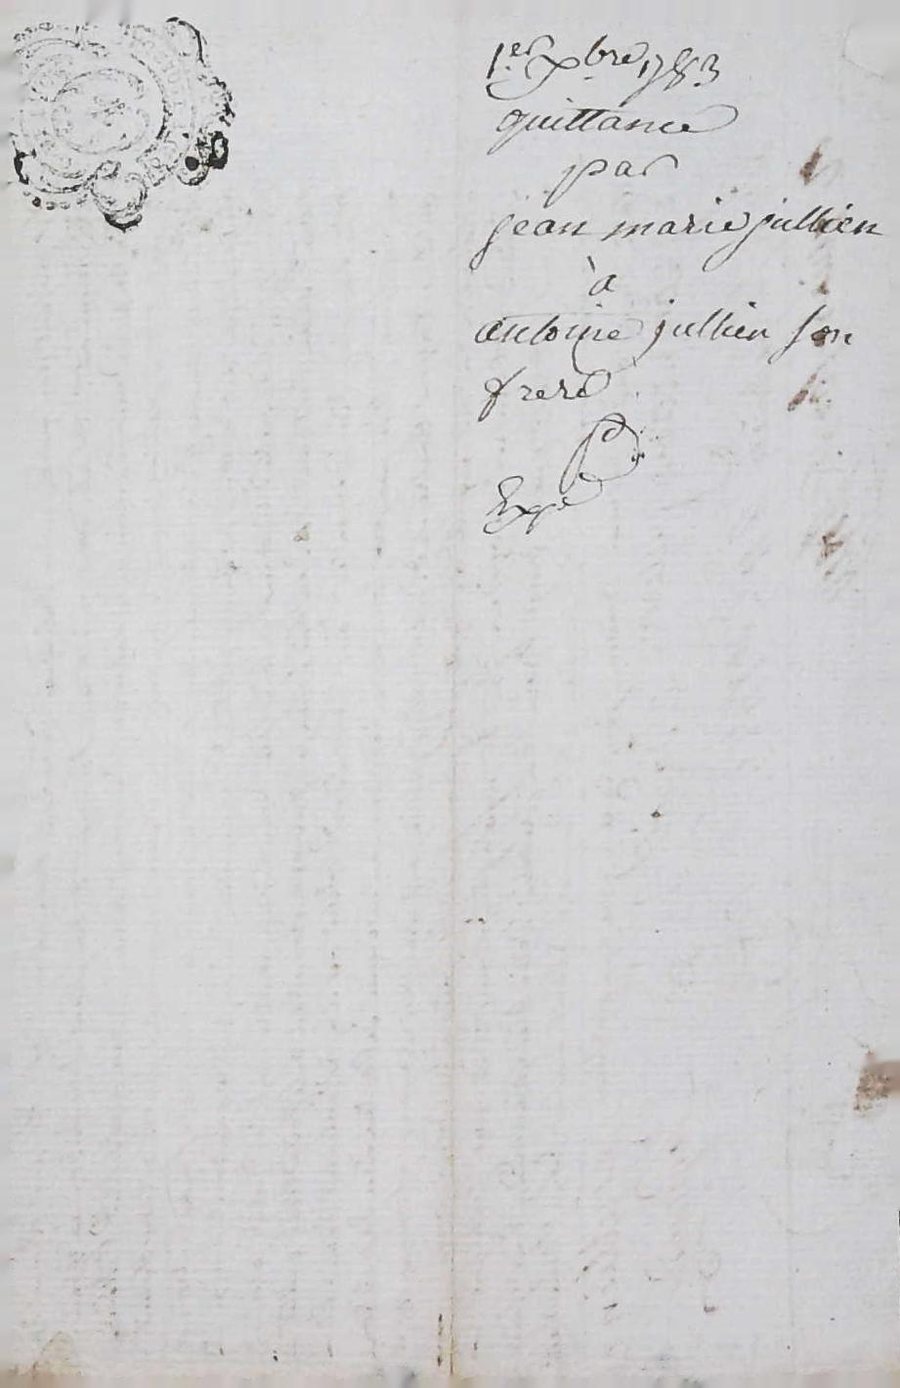 1er xbre 1783
quittance
par
jean marie jullien
à
antoine jullien son
frere
Expé